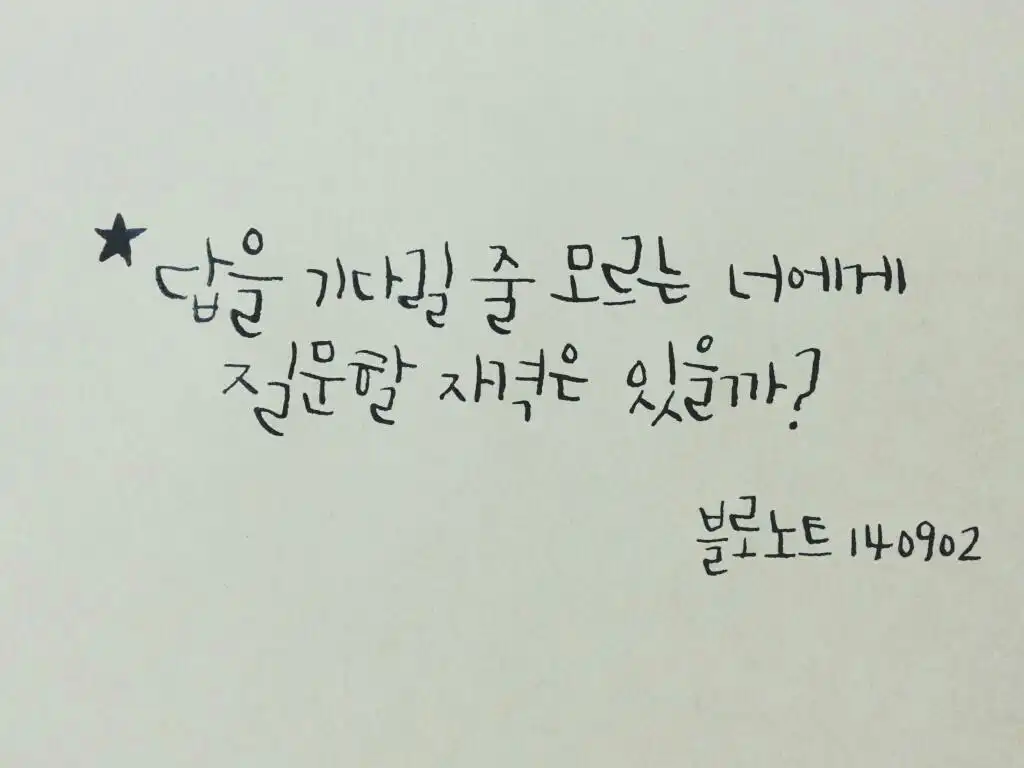 ★ 답을 기다릴 줄 모르는 너에게
질문할 자격은 있을까?
블로노트 140902